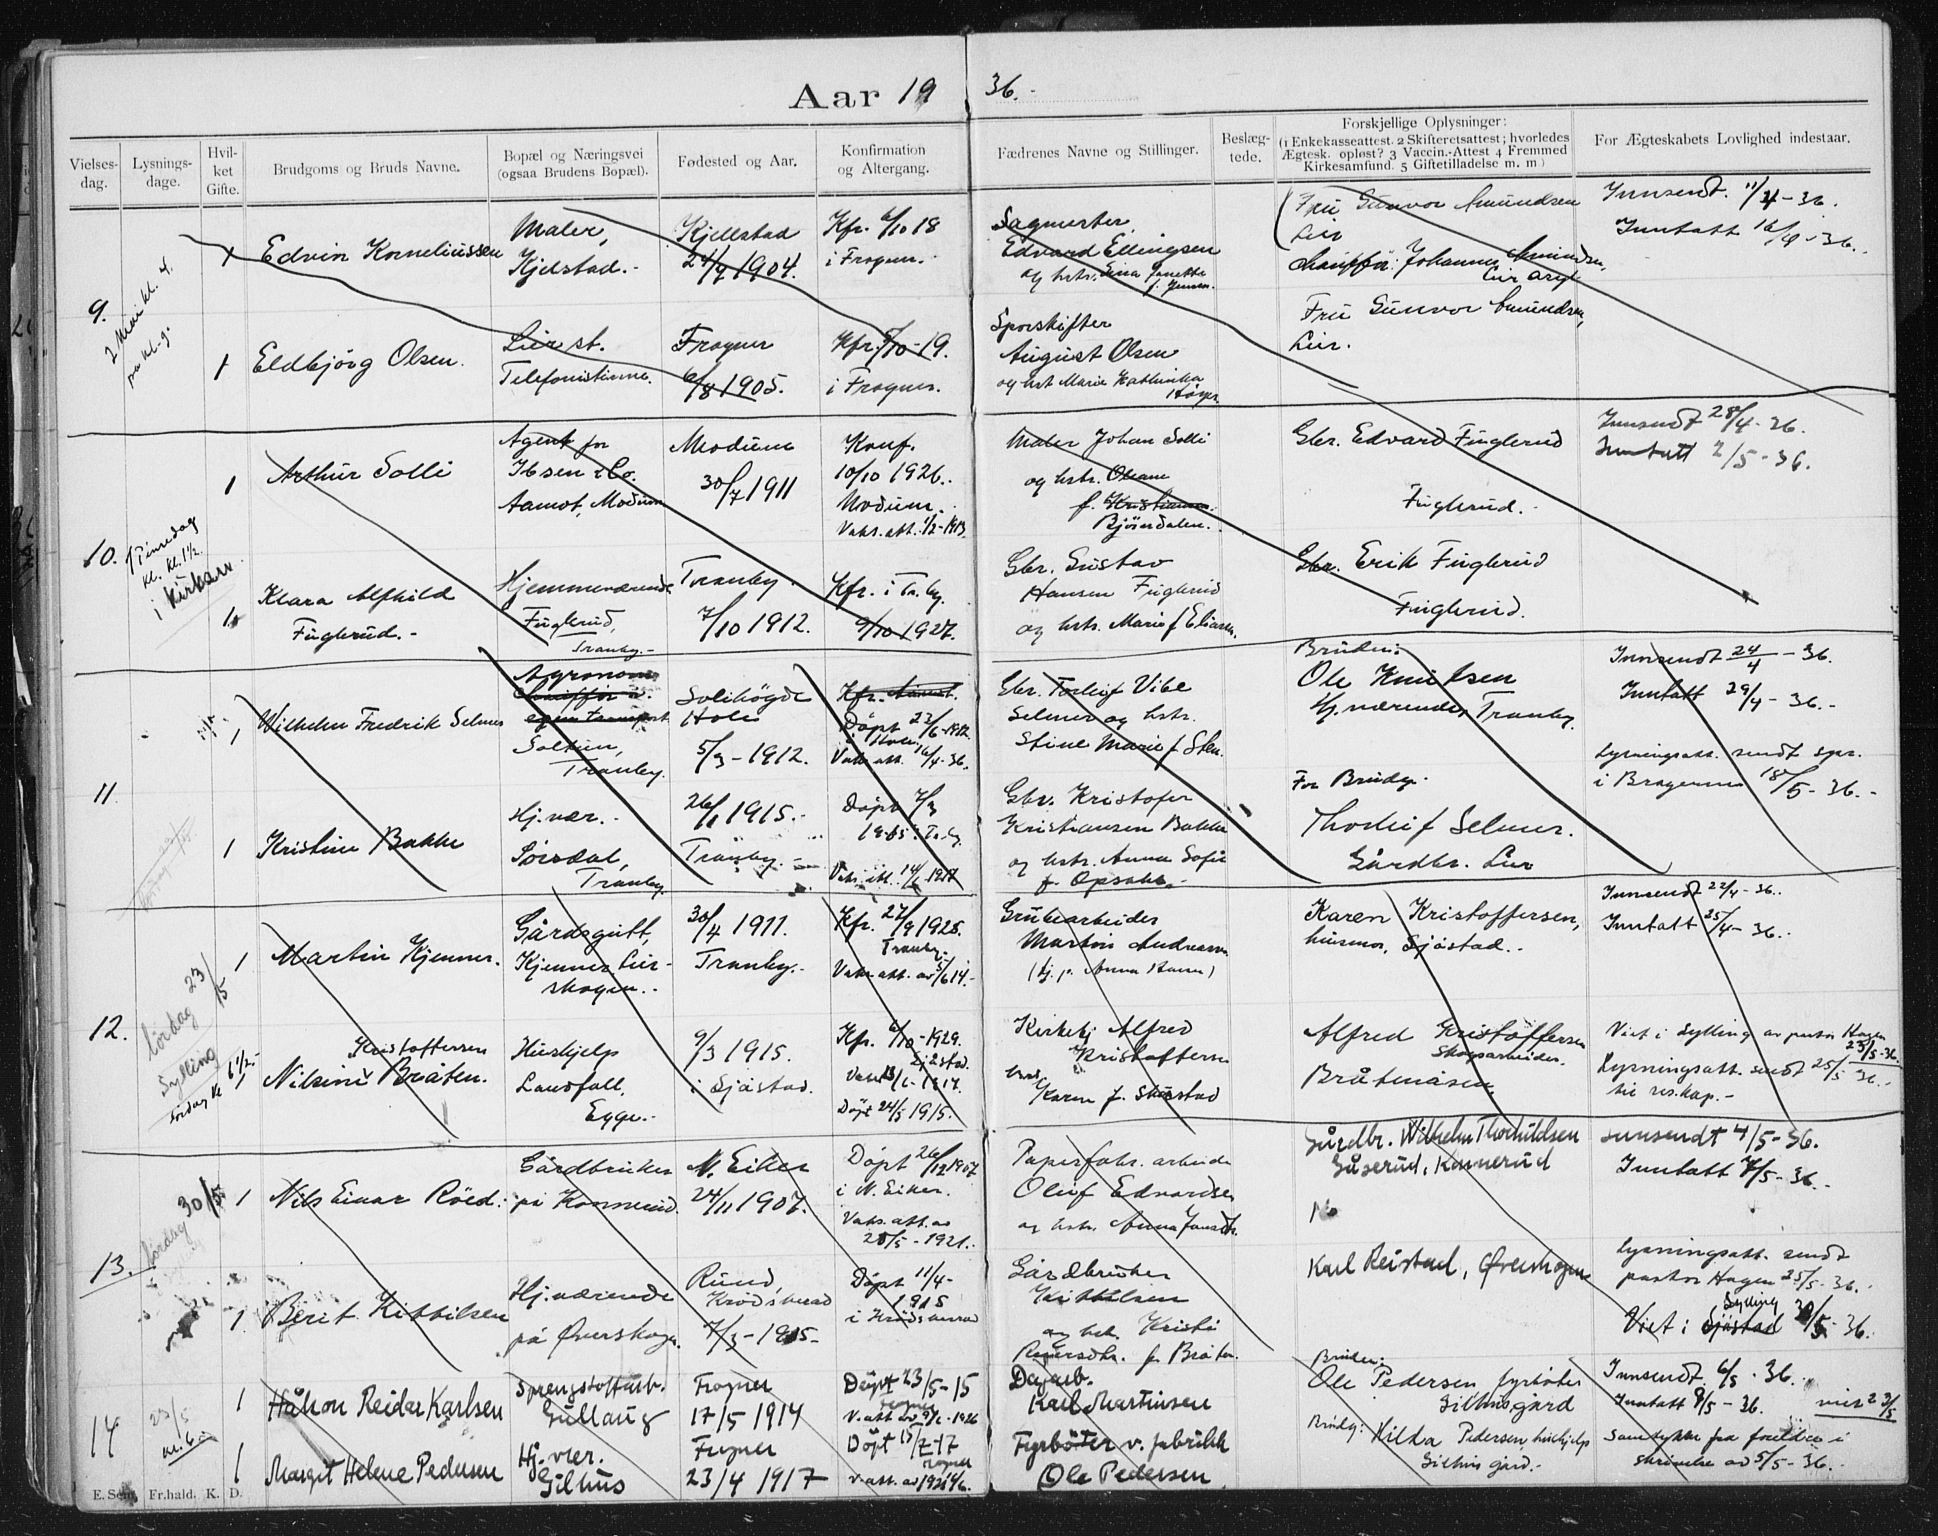 Aar 1936.
Vielses-dag.
Lysnings-dage.
Hvil-ket Gifte.
Brudgoms og Bruds Navne.
Bopæl og Næringsvei (ogsaa Brudens Bopæl).
Fødested og Aar.
Konfirmation og Altergang.
Fædrenes Navne og Stillinger.
Beslæg-tede.
Forskjellige Oplysninger:
(1 Enkekasseattest. 2 Skifteretsattest; hvorledes
Ægtesk. opløst? 3 Vaccin.-Attest 4 Fremmed
Kirkesamfund. 5 Giftetilladelse m. m)
For Ægteskabets Lovlighed indestaar.
9.
2 Mai kl. 4.
1
Edvin Korneliussen
Maler,
Kjelstad.-
Kjellstad
24/7 1904.
Kfr. 6/10 18
i Frogner.
Sagmester
Edvard Ellingsen
og hstr.
Fru Gunvor Amundsen
Lier
Johannes Amundsen,
Fru Gunvor Amundsen,
Lier.
Innsendt. 11/4-36.
Inntatt 16/4-36.
1
Eldbjörg Olsen.
Lier st.
Telefonistinne.
Frogner
6/8 1905.
Kfr. 5/10-19.
i Frogner.
Sporskifter
August Olsen
og hst Marie Kathinka
10.
i kirken
1
Arthur Solli
Agent for
Ibsen & Co.
Aamot, Modum
Modum
30/7 1911
Konf.
10/10 1926.
Modum.
Vaks. att. 1/2-1913
Maler Johan Solli
og hstr. Oleane
f. Kristiansen
Björedalen.
Gbr. Edvard Fuglerud
Fuglerud.
Innsendt 28/4-36.
Inntatt 2/5-36.
1
Klara Alfhild
Fuglerud.-
Hjemmeværende
Fuglerud,
Tranby.-
Tranby.
7/10 1912.
Kfr. i Tr.by.
9/10 1927.
Gbr. Gustav
Hansen Fuglerud
og hstr. Marie f Eliassen.
Gbr. Erik Fuglerud
Fuglerud.
11.
1
Wilhelm Fredrik Selmer
Agronom
Chauffør i
egen transport
Soltun,
Tranby.
Solihögda
Hole
5/3-1912.
Döpt 23/6-1912.
i Hole,
Vaks. att. 6/4-36.
Gbr. Torleif Vibe
Selmer og hstr.
Stine Marie f Sten.
Bruden:
Ole Knutsen
Hj.værende, Tranby.
Innsendt 24/4-36.
Inntatt 29/4-36.-
Lysningsatt. sendt spr.
i Bragernes 18/5-36.-
1
Kristine Bakke
Hj.vær.-
Sörsdal,
Tranby.
26/1 1915.-
Tranby.-
Döpt 7/3
1915 i Tr.by
Vaks. att. 14/6 1917
Gbr. Kristofer
Kristiansen Bakke
og hstr. Anna Sofie
f. Opsahl.-
For Brudg.
Thorleif Selmer.
Gårdbr. Lier
12.
Lördag 23/5
Sylling
1
Martin Kjenner.
Gårdsgutt,
Kjenner Lier-
skogen.
30/4 1911.
Tranby.-
Kfr. 27/9 1925.
Tranby.-
Vaks. att. av 5/6 14.-
Grubearbeider
Martin Andreassen
Karen Kristoffersen,
husmor, Sjåstad.
Innsendt 22/4-36.
Inntatt 25/4-36.
1
Kristoffersen
Nilsine Bråten.
Hushjelp
Landfall,
Egge.
9/3 1915.
i Sjåstad.
Kfr. 6/10-1929.
Sjåstad.
Döpt 24/5 1915.
Kirketj Alfred
Kristoffersen
Karen f. Skurstad
Alfred Kristoffersen
Skogsarbeider.
Bråtenåsen
Viet i Sylling av pastor Hagen
23/5-36.
Lysningsatt. sendt 25/5 36.-
til res.kap.-
13.
Lördag 30/5
1
Nils Einar Röed.
Gårdbruker
på Konnerud.
N. Eiker
24/11 1907.
Döpt 26/12 1907.
i N. Eiker.
Vaks. att. av
28/5-1921.
Papirfabr. arbeider
Oluf Edvardsen
og hstr. Anna Jansdtr.
Gårdbr. Wilhelm Thorkildsen
Gåserud, Konnerud
Innsendt 4/5-36.
Inntatt 7/5-36.
1
Berit Kittilsen
Hj.værende
på Överskogen.
Rund,
Krödsherad
7/3-1915-
Döpt 11/4-
1915
i Krödsherad
Gårdbruker
Kittilsen
og hst. Kristi
f. Bråten.
Karl Reistad, Øverskogen
Lysningsatt. sendt
pastor Hagen 25/5-36.
Viet i Sjåstad Sylling 30/5-36.
14
23/5
kl. 6
1
Håkon Reidar Karlsen
Sprengstoffarb.
Gullaug
Frogner
17/5 1914
Döpt 23/5-15
Frogner
V. att av 9/6-1926
Dagarb.
Karl Martinsen
Bruden:
Ole Pedersen fyrböter
Gilhus gård
Innsendt 6/5-36.
Inntatt 8/5-36.
viet 23/5
1
Margit Helene Pedersen
Hj. vær.
Gilhus
Frogner
23/4 1917
Döpt 15/7-17
Frogner
V att. av 1921
Fyrböter v. fabrikk
Ole Pedersen
Brudg: Hilda Pedersen, hushjelp
Gilhus gård.-
Samtykke fra foreldre i
skrivelse av 5/5-36.-
E. Sem, Fr.hald. K. D.